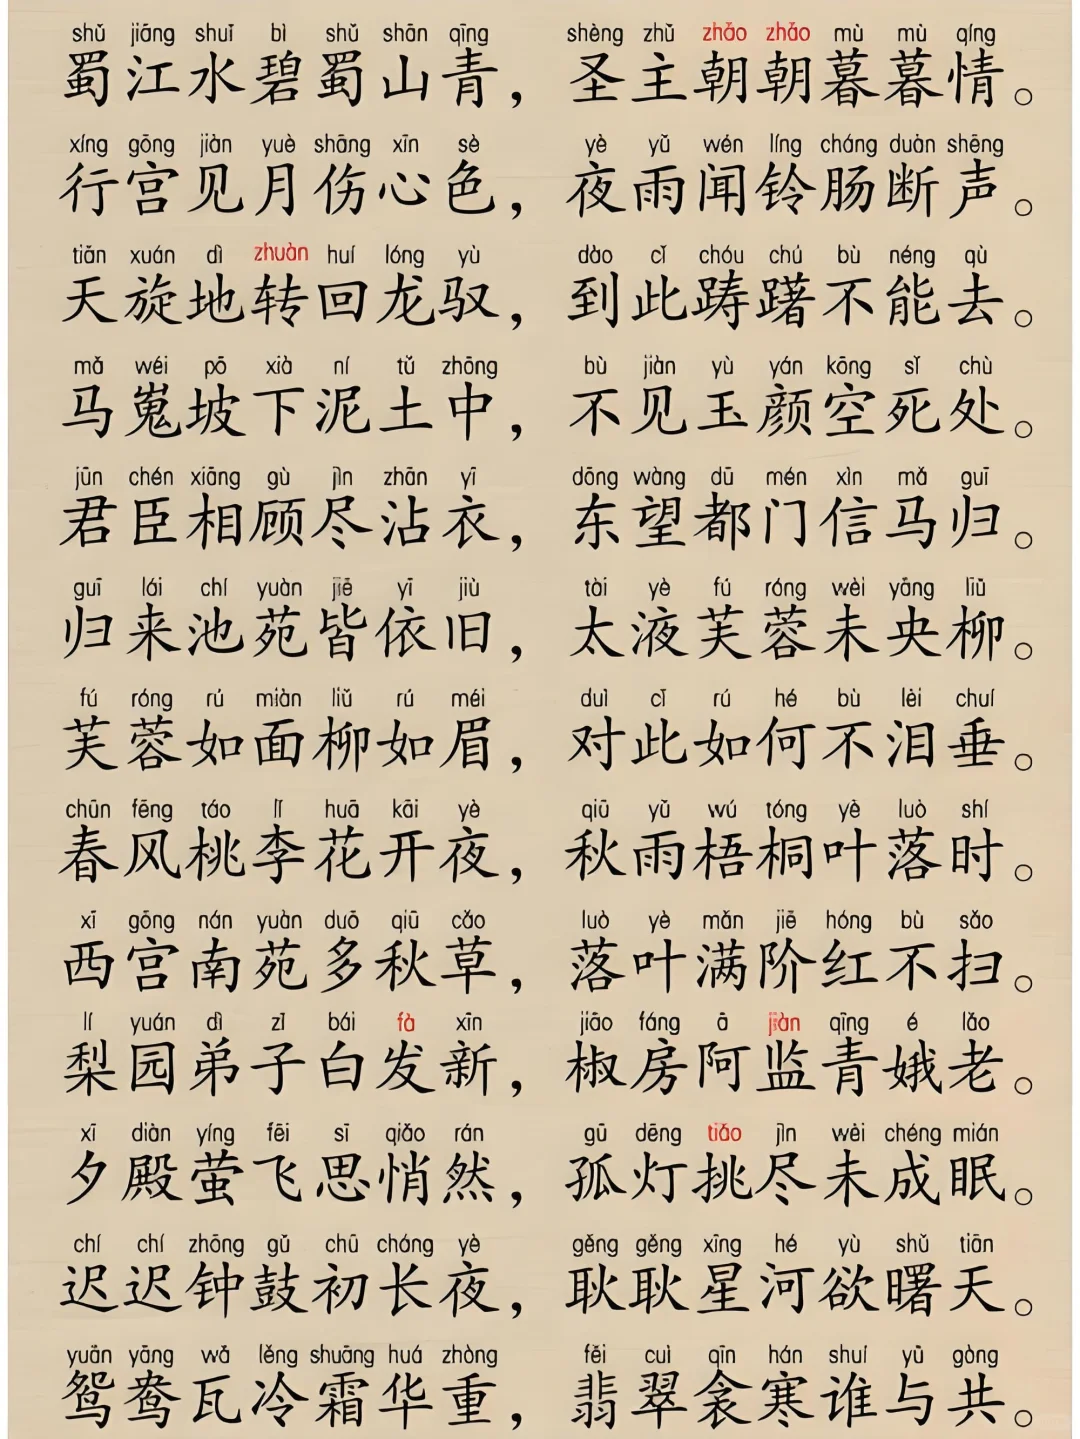 shǔ jiāng shuǐ bì shǔ shān qīng shèng zhǔ zhāo zhāo mù mù qíng
蜀江水碧蜀山青，圣主朝朝暮暮情。
xíng gōng jiàn yuè shāng xīn sè yè yǔ wén líng cháng duàn shēng
行宫见月伤心色，夜雨闻铃肠断声。
tiān xuán dì zhuàn huí lóng yù dào cǐ chóu chú bù néng qù
天旋地转回龙驭，到此踌躇不能去。
mǎ wéi pō xià ní tǔ zhōng bù jiàn yù yán kōng sǐ chù
马嵬坡下泥土中，不见玉颜空死处。
jūn chén xiāng gù jìn zhān yī dōng wàng dū mén xìn mǎ guī
君臣相顾尽沾衣，东望都门信马归。
guī lái chí yuàn jiē yī jiù tài yè fú róng wèi yāng liǔ
归来池苑皆依旧，太液芙蓉未央柳。
fú róng rú miàn liǔ rú méi duì cǐ rú hé bù lèi chuí
芙蓉如面柳如眉，对此如何不泪垂。
chūn fēng táo lǐ huā kāi yè qiū yǔ wú tóng yè luò shí
春风桃李花开夜，秋雨梧桐叶落时。
xī gōng nán yuàn duō qiū cǎo luò yè mǎn jiē hóng bù sǎo
西宫南苑多秋草，落叶满阶红不扫。
lí yuán dì zǐ bái fà xīn jiāo fáng ā jiàn qīng é lǎo
梨园弟子白发新，椒房阿监青娥老。
xī diàn yíng fēi sī qiǎo rán gū dēng tiǎo jìn wèi chéng mián
夕殿萤飞思悄然，孤灯挑尽未成眠。
chí chí zhōng gǔ chū cháng yè gěng gěng xīng hé yù shǔ tiān
迟迟钟鼓初长夜，耿耿星河欲曙天。
yuān yāng wǎ lěng shuāng huá zhòng fěi cuì qīn hán shuí yǔ gòng
鸳鸯瓦冷霜华重，翡翠衾寒谁与共。